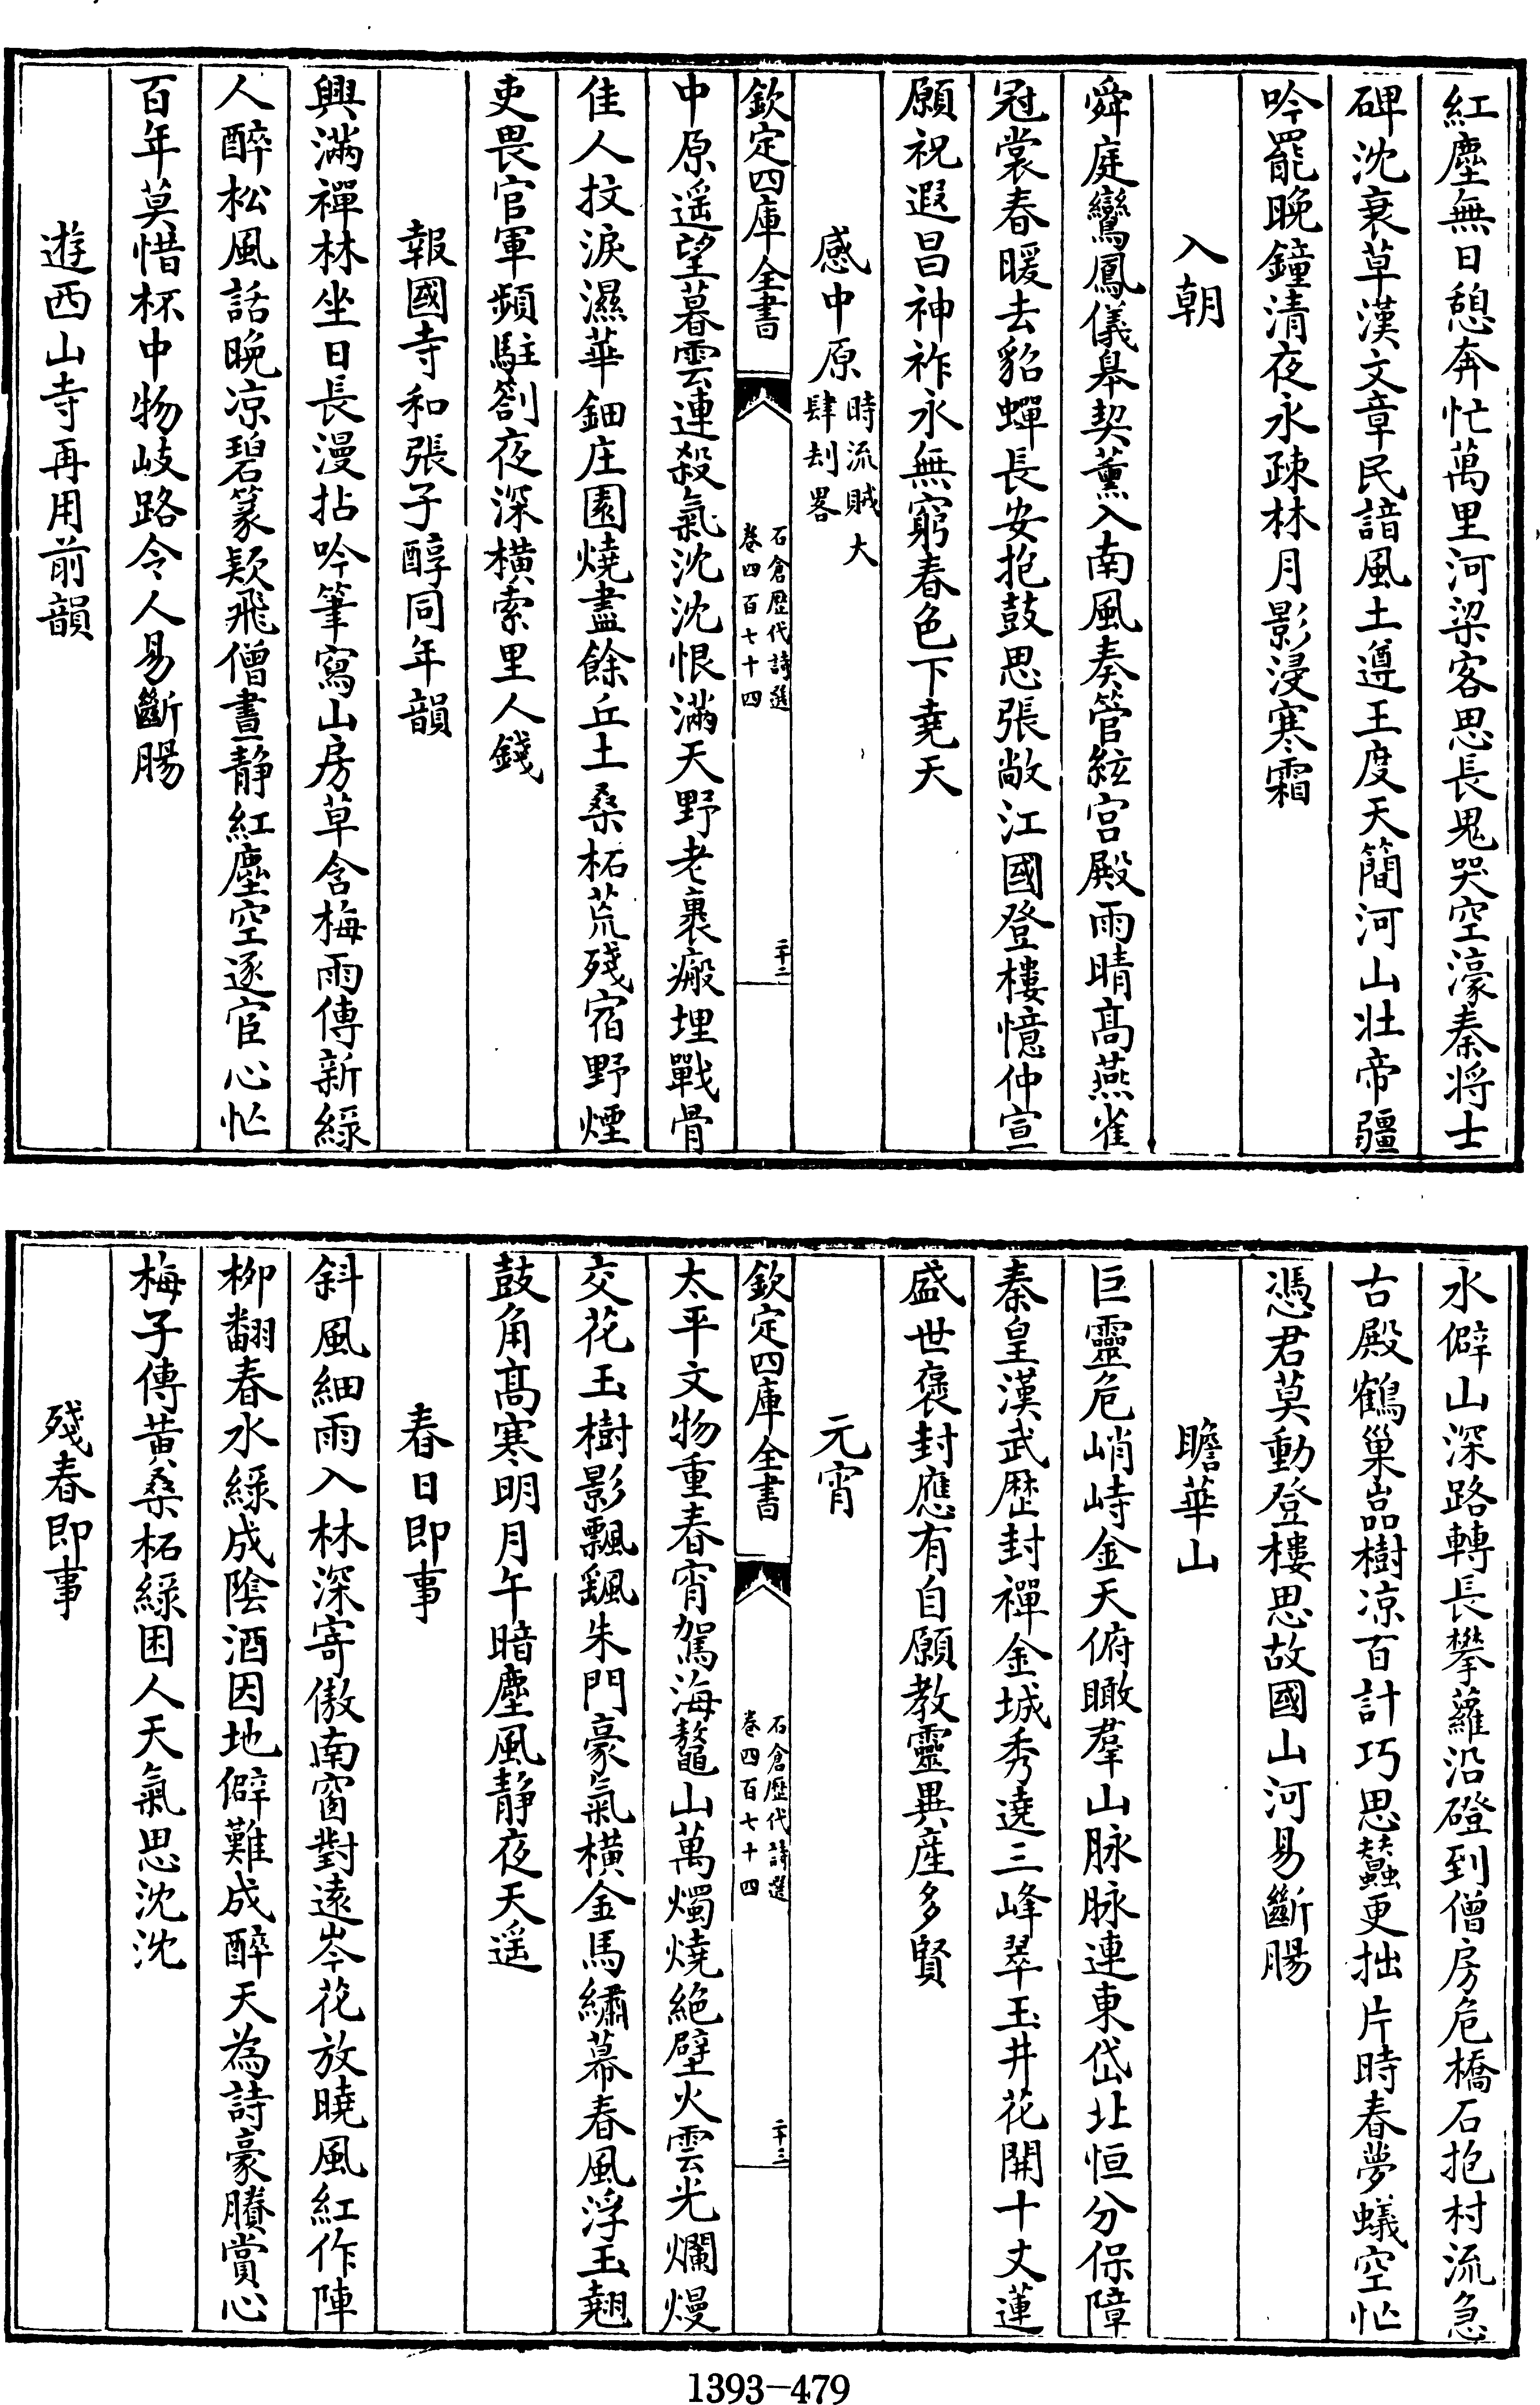 紅塵無日憩奔忙萬里河梁客思長鬼哭空濠秦將士
碑沈衰草漢文章民諳風土遵王度天簡河山壯帝疆
吟罷晚鐘清夜永疎林月影浸寒霜
入朝
舜庭鸞鳳儀皋契薰入南風奏管絃宮殿雨晴高燕雀
冠裳春暖去貂蟬長安抱鼓思張敞江國登樓憶仲宣
願祝遐昌神祚永無窮春色下堯天
感中原時流賊大肆刦畧
欽定四庫全書
石倉歷代詩選
卷四百七十四
二十二
中原遥望暮雲連殺氣沈沈恨滿天野老裹瘢埋戰骨
佳人抆淚濕華鈿庄園燒盡餘丘土桑柘荒殘宿野煙
吏畏官軍頻駐劄夜深橫索里人錢
報國寺和張子醇同年韻
興滿禪林坐日長漫拈吟筆寫山房草含梅雨傳新綠
人醉松風話晚凉碧篆欵飛僧晝靜紅塵空逐宦心忙
百年莫惜杯中物岐路令人易斷腸
遊西山寺再用前韻
水僻山深路轉長攀蘿沿磴到僧房危橋石抱村流急
古殿鶴巢嵓樹凉百計巧思蠶更拙片時春夢蟻空忙
憑君莫動登樓思故國山河易斷腸
瞻華山
巨靈危峭峙金天俯瞰羣山脉脉連東岱北恒分保障
秦皇漢武歷封禪金城秀遶三峰翠玉井花開十丈蓮
盛世褒封應有自願教靈異產多賢
元宵
欽定四庫全書
石倉歷代詩選
卷四百七十四
二十三
太平文物重春宵駕海鼇山萬燭燒絕壁火雲光爛熳
交花玉樹影飄颻朱門豪氣橫金馬繡幕春風浮玉翹
鼓角高寒明月午暗塵風靜夜天遥
春日即事
斜風細雨入林深寄傲南窗對遠岑花放曉風紅作陣
栁翻春水綠成陰酒因地僻難成醉天為詩豪賸賞心
梅子傳黃桑柘綠困人天氣思沈沈
殘春即事
1393-479